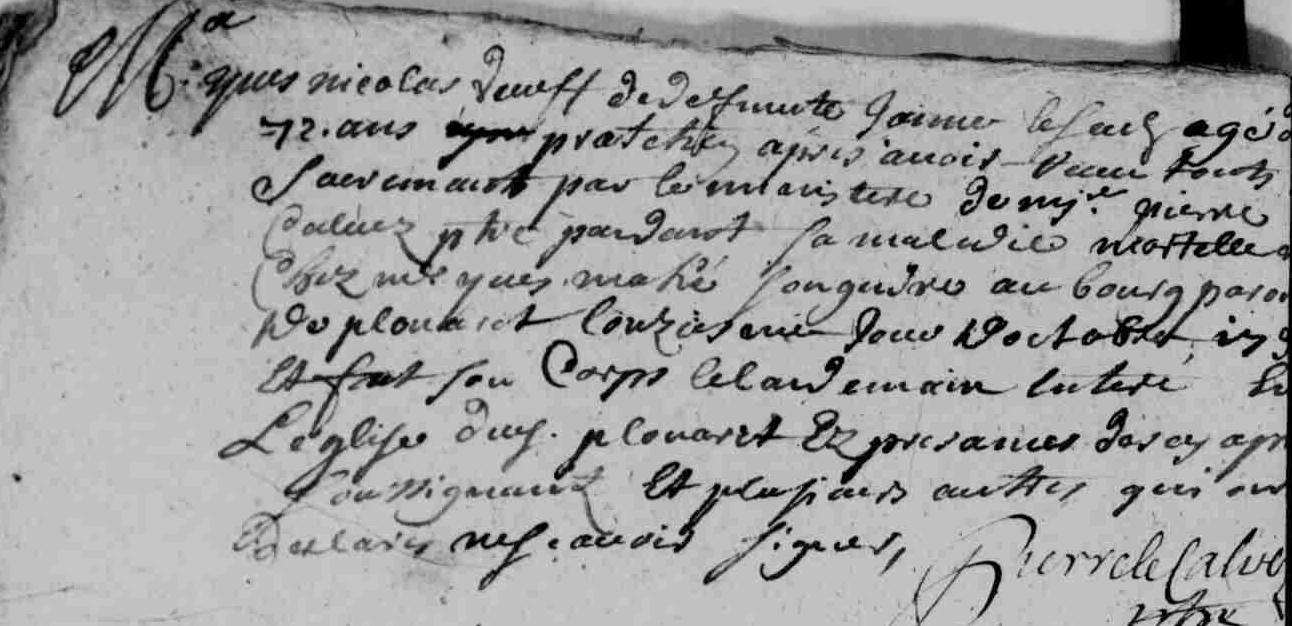 Ma
yves nicolas veuff de deffuncte Janne agé
72. ans apres avoir Receu touts
Sacremants par le ministere de mi.re pierre
Calvez ptre pandant sa maladie mortelle
Chez me yves mahé son gendre au bourg paro
De plouaret l'onziesme Jour D'octobre 17
Et fut son Corps le landemain Interé En
L'eglise dud. plouaret Ez presances des cy apr
soussignantz Et plusieurs auttres qui on
declarés ne scavoir signer,
Pierre le Calve
ptre